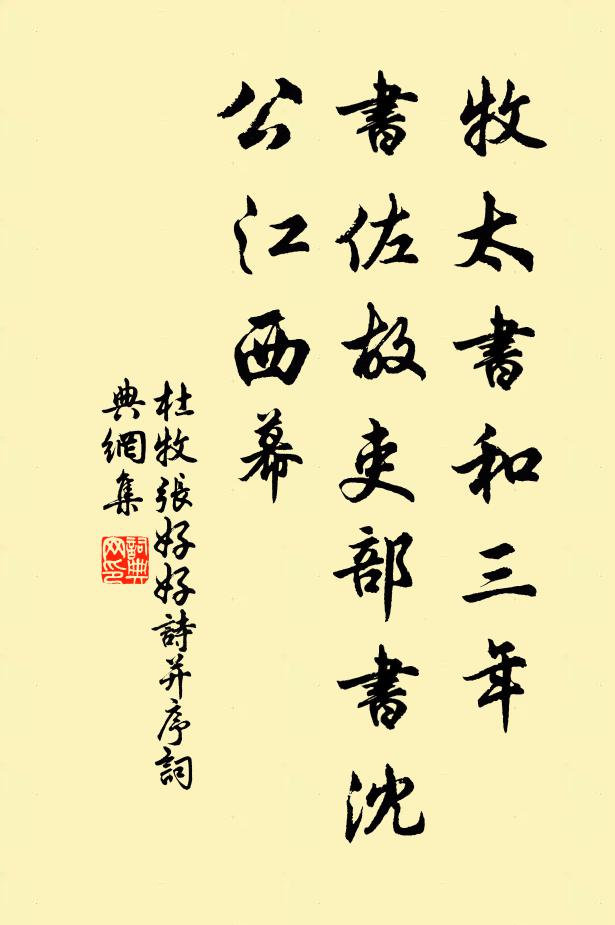 牧太書和三年
書佐故吏部書沈
公江西幕
杜牧張好好詩并序詞
典網集
詞典
网印